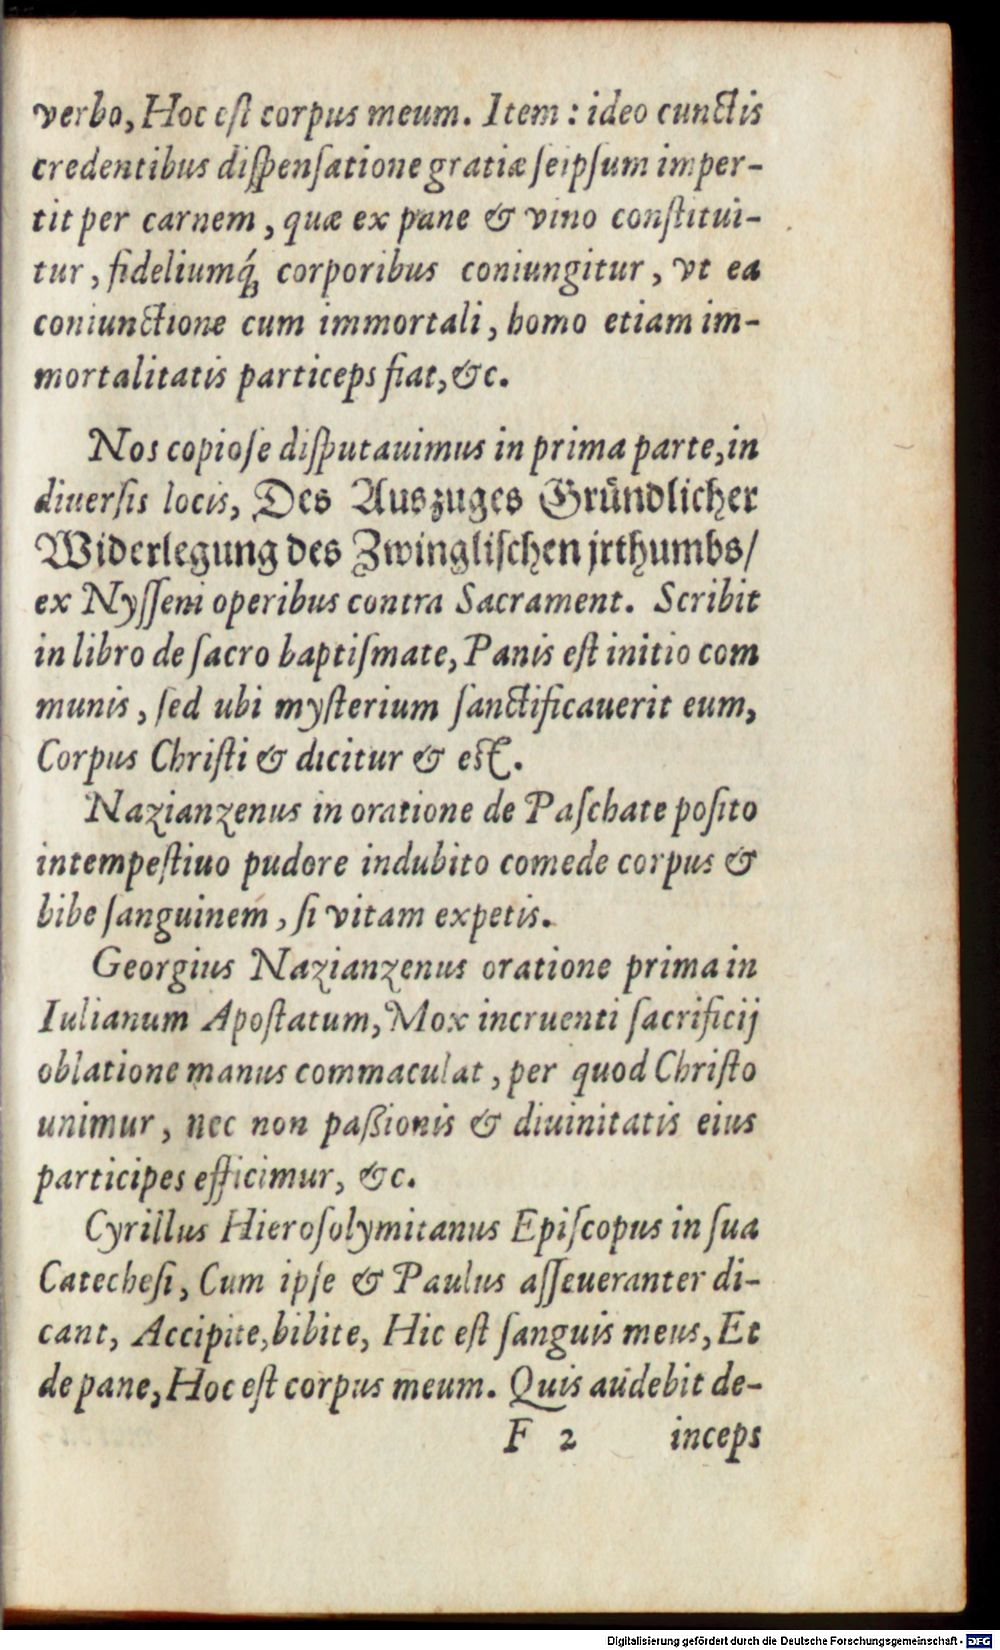 verbo, Hoc est corpus meum. Item: ideo cunctis
credentibus dispensatione gratiæ seipsum imper-
tit per carnem, quæ ex pane & vino constitui-
tur, fideliumq́; corporibus coniungitur, vt ea
coniunctione cum immortali, homo etiam im-
mortalitatis particeps fiat, &c.
Nos copiose disputauimus in prima parte, in
diuersis locis, Des Auszuges Gründlicher
Widerlegung des Zwinglischen jrthumbs/
ex Nysseni operibus contra Sacrament. Scribit
in libro de sacro baptismate, Panis est initio com
munis, sed ubi mysterium sanctificauerit eum,
Corpus Christi & dicitur & est.
Nazianzenus in oratione de Paschate posito
intempestiuo pudore indubito comede corpus &
bibe sanguinem, si vitam expetis.
Georgius Nazianzenus oratione prima in
Iulianum Apostatum, Mox incruenti sacrificij
oblatione manus commaculat, per quod Christo
unimur, nec non paßionis & diuinitatis eius
participes efficimur, &c.
Cyrillus Hierosolymitanus Episcopus in sua
Catechesi, Cum ipse & Paulus asseueranter di-
cant, Accipite, bibite, Hic est sanguis meus, Et
de pane, Hoc est corpus meum. Quis audebit de-
F 2 inceps
Digitalisierung gefördert durch die Deutsche Forschungsgemeinschaft - DFG